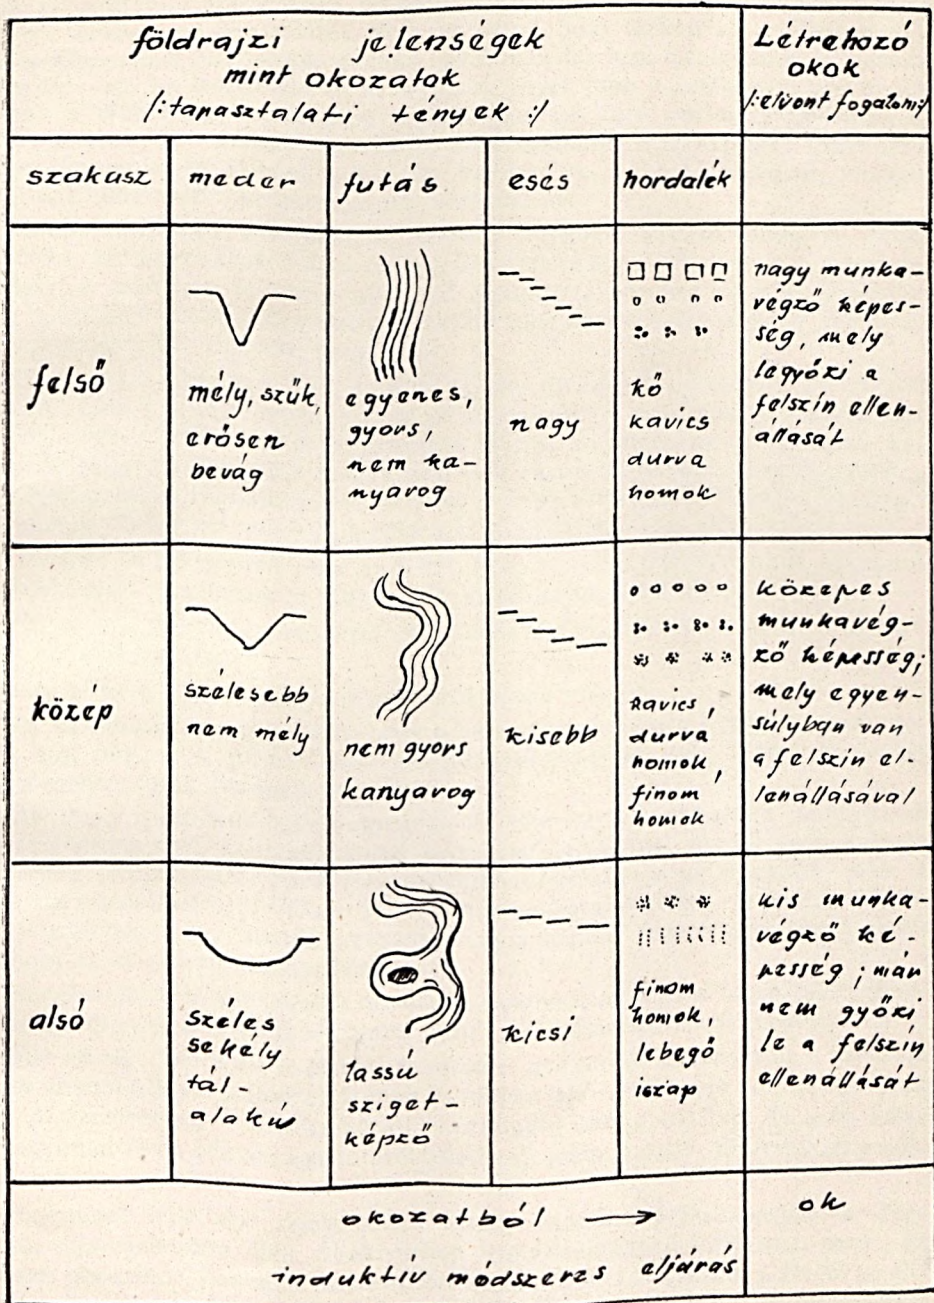 földrajzi jelenségek
mint okozatok
/:tapasztalati tények:/
Létrehozó
okok
/:elvont fogalom:/
szakasz
meder
futás
esés
hordalék
felső
mély, szűk,
erősen
bevág
egyenes,
gyors,
nem ka-
nyarog
nagy
kő
kavics
durva
homok
nagy munka-
végző képes-
ség, mely
legyőzi a
felszín ellen-
állását
közép
szélesebb
nem mély
nem gyors
kanyarog
kisebb
kavics,
durva
homok,
finom
homok
közepes
munkavég-
ző képesség;
mely egyen-
súlyban van
a felszín el-
lenállásával
alsó
széles
sekély
tál-
alakú
lassú
sziget-
képző
kicsi
finom
homok,
lebegő
iszap
kis munka-
végző ké-
pesség; már
nem győzi
le a felszín
ellenállását
okozatból →
ok
induktív módszeres eljárás